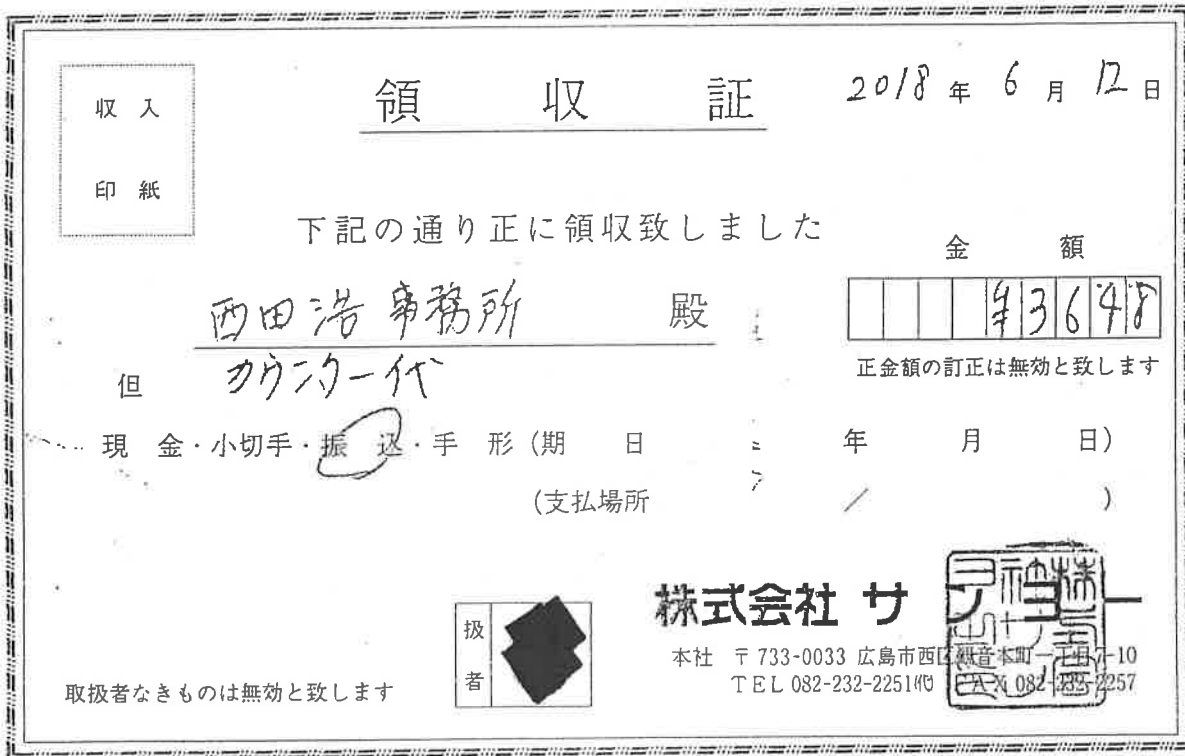 収入
印紙
領収証
2018年6月12日
下記の通り正に領収致しました
金額
西田浩事務所 殿
¥3648
正金額の訂正は無効と致します
但 カウンター代
現金・小切手・振込・手形(期日 年 月 日)
(支払場所 / )
株式会社サンヨー
扱者
本社 〒733-0033 広島市西区観音本町一丁目7-10
TEL 082-232-2251代 FAX 082-232-2257
取扱者なきものは無効と致します